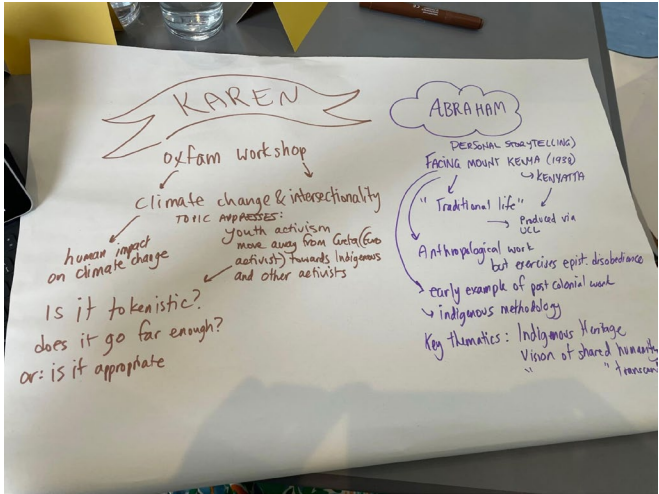 KAREN
oxfam workshop
climate change & intersectionality
human impact
on climate change
TOPIC ADDRESSES:
youth activism
move away from Greta (Euro
activist) towards Indigenous
and other activists
Is it tokenistic?
does it go far enough?
or: is it appropriate
ABRAHAM
PERSONAL STORYTELLING)
FACING MOUNT KENYA (1938)
→ KENYATTA
"Traditional life"
→ Produced via
UCL
Anthropological work
but exercises epist disobediance
early example of post colonial work
↳ indigenous methodology
Key thematics: Indigenous Heritage
Vision of shared humanity
" "